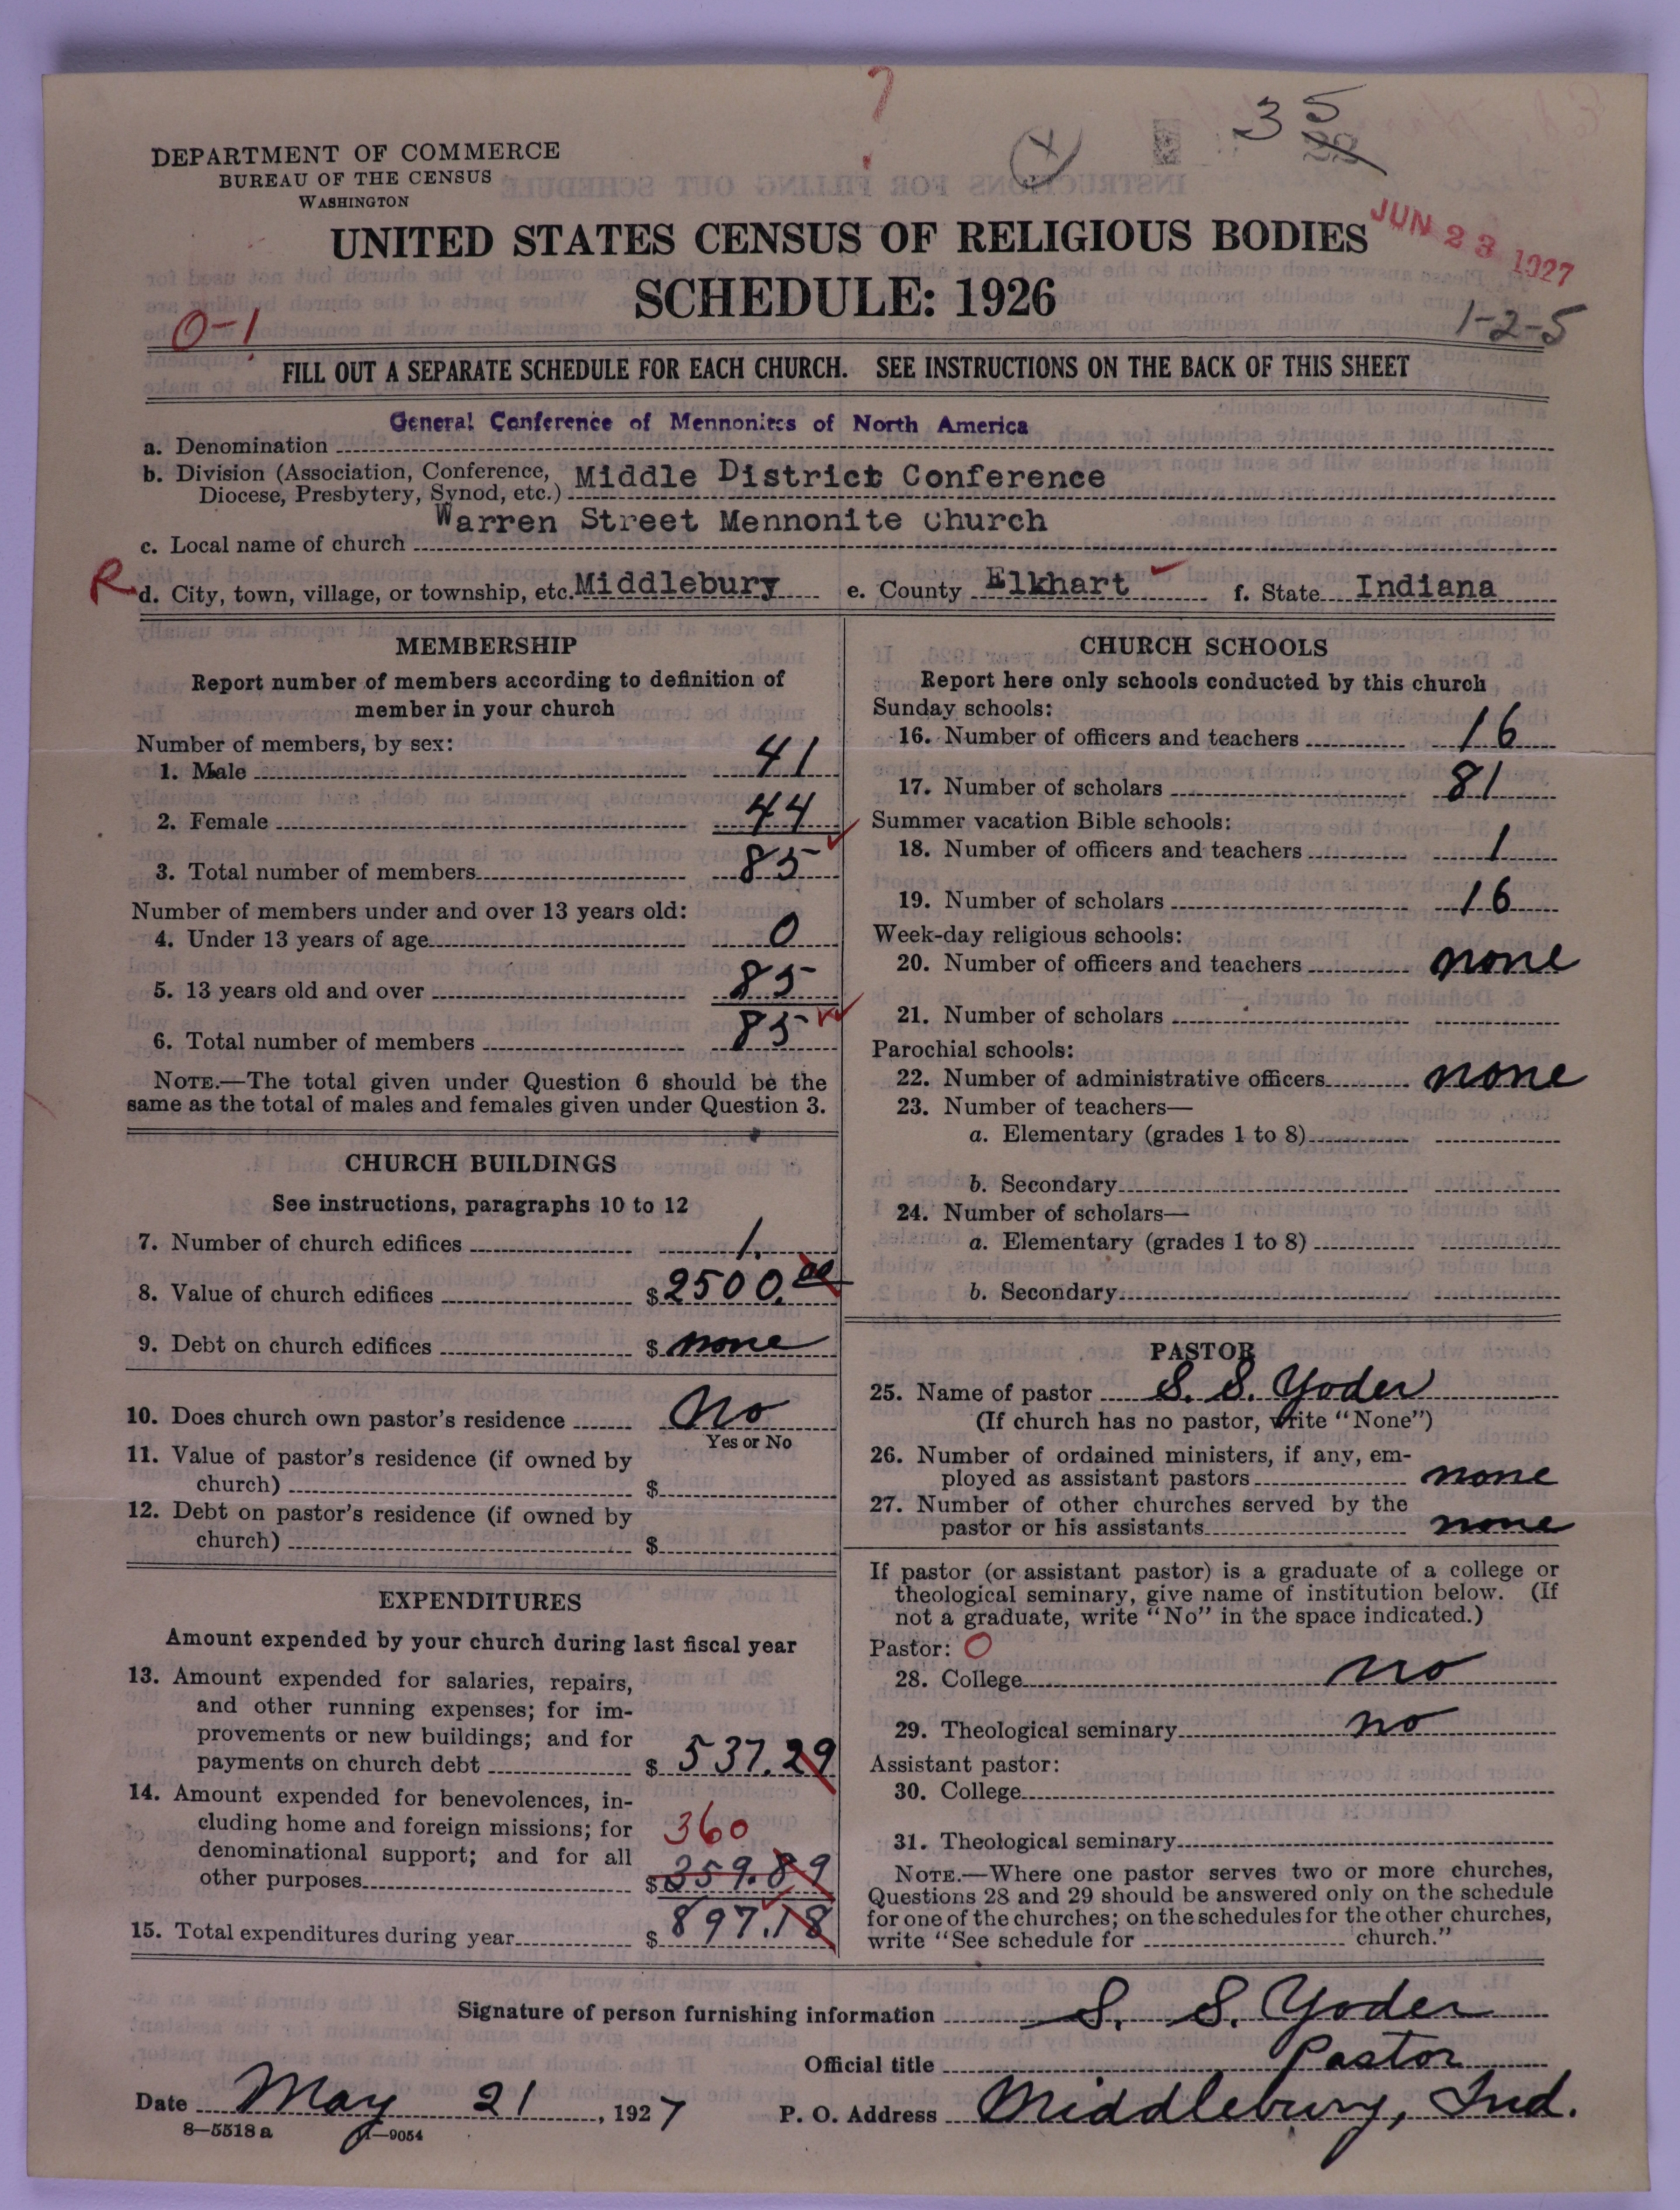 35
DEPARTMENT OF COMMERCE
BUREAU OF THE CENSUS
WASHINGTON
UNITED STATES CENSUS OF RELIGIOUS BODIES
JUN 23 1927
SCHEDULE: 1926
0-1
1-2-5
FILL OUT A SEPARATE SCHEDULE FOR EACH CHURCH. SEE INSTRUCTIONS ON THE BACK OF THIS SHEET
General Conference of Mennonites of North America
a. Denomination
b. Division (Association, Conference, Middle District Conference
Diocese, Presbytery, Synod, etc.)
Warren Street Mennonite Church
c. Local name of church
R d. City, town, village, or township, etc. Middlebury e. County Elkhart f. State Indiana
MEMBERSHIP
Report number of members according to definition of
member in your church
Number of members, by sex:
1. Male 41
2. Female 44
3. Total number of members 85
Number of members under and over 13 years old:
4. Under 13 years of age 0
5. 13 years old and over 85
6. Total number of members 85
NOTE.—The total given under Question 6 should be the
same as the total of males and females given under Question 3.
CHURCH BUILDINGS
See instructions, paragraphs 10 to 12
7. Number of church edifices 1.
8. Value of church edifices $ 2500.00
9. Debt on church edifices $ none
10. Does church own pastor's residence No
Yes or No
11. Value of pastor's residence (if owned by
church) $
12. Debt on pastor's residence (if owned by
church) $
EXPENDITURES
Amount expended by your church during last fiscal year
13. Amount expended for salaries, repairs,
and other running expenses; for im-
provements or new buildings; and for
payments on church debt $ 537.29
14. Amount expended for benevolences, in-
cluding home and foreign missions; for 360
denominational support; and for all
other purposes $ 359.89
15. Total expenditures during year $ 897.18
CHURCH SCHOOLS
Report here only schools conducted by this church
Sunday schools:
16. Number of officers and teachers 16
17. Number of scholars 81
Summer vacation Bible schools:
18. Number of officers and teachers 1
19. Number of scholars 16
Week-day religious schools:
20. Number of officers and teachers none
21. Number of scholars
Parochial schools:
22. Number of administrative officers none
23. Number of teachers—
a. Elementary (grades 1 to 8)
b. Secondary
24. Number of scholars—
a. Elementary (grades 1 to 8)
b. Secondary
PASTOR
25. Name of pastor S. S. Yoder
(If church has no pastor, write "None")
26. Number of ordained ministers, if any, em-
ployed as assistant pastors none
27. Number of other churches served by the
pastor or his assistants none
If pastor (or assistant pastor) is a graduate of a college or
theological seminary, give name of institution below. (If
not a graduate, write "No" in the space indicated.)
Pastor: O
28. College no
29. Theological seminary no
Assistant pastor:
30. College
31. Theological seminary
NOTE.—Where one pastor serves two or more churches,
Questions 28 and 29 should be answered only on the schedule
for one of the churches; on the schedules for the other churches,
write "See schedule for church."
Signature of person furnishing information S. S. Yoder
Official title Pastor
Date May 21, 1927 P. O. Address Middlebury, Ind.
8—5518 a 11—9054